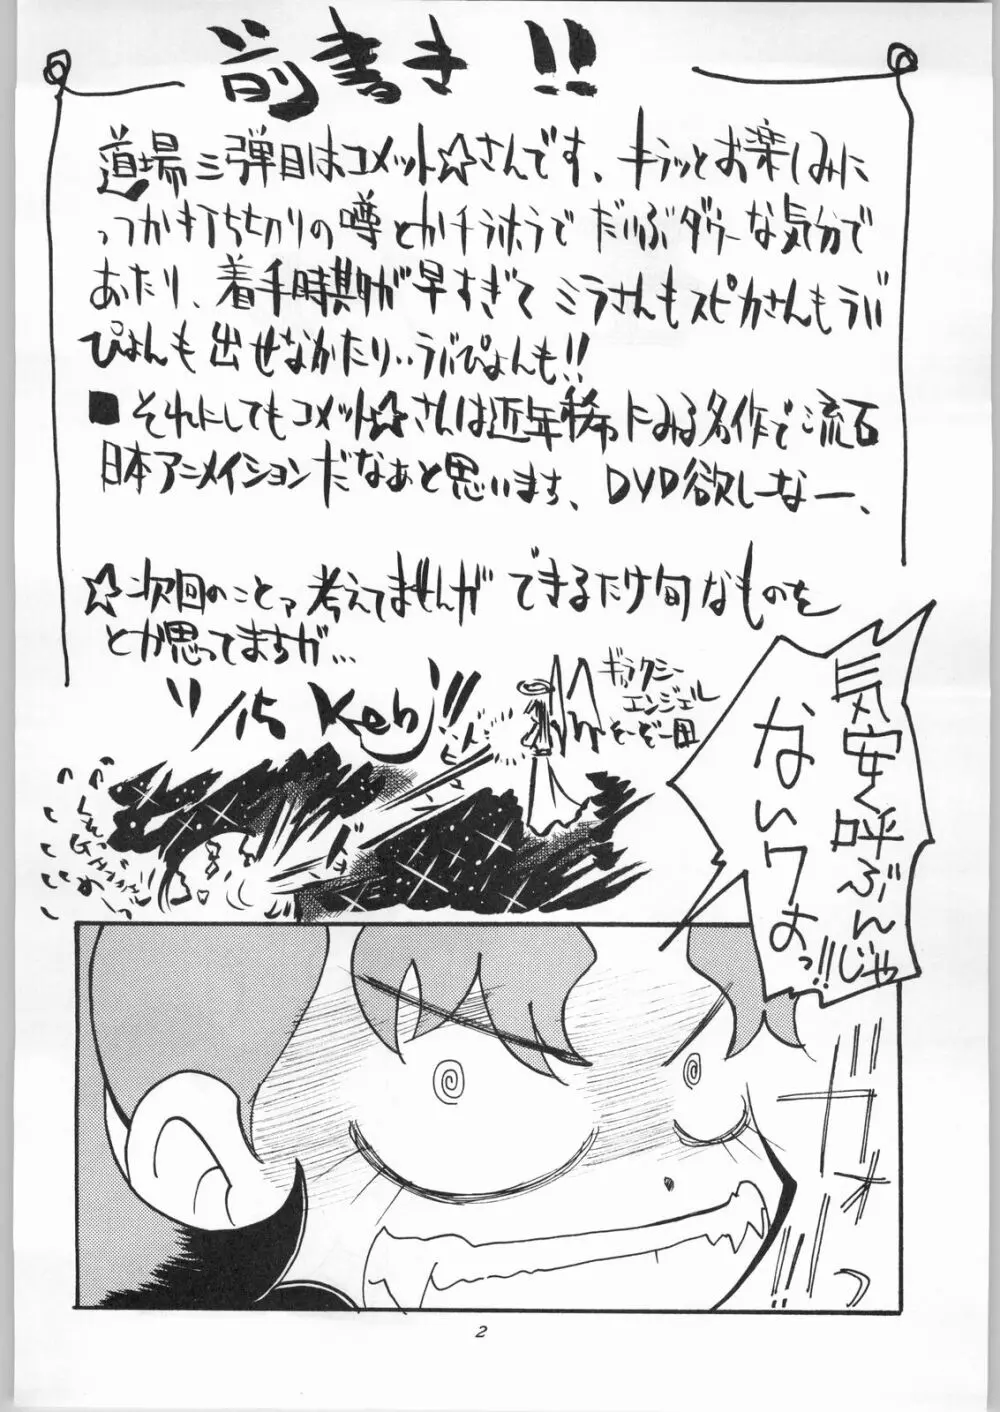 前書き!!
道場三弾目はコメット☆さんです、キラッとお楽しみに
っつか打ち切りの噂とかチラホラでだいぶダウーな気分で
あたり、着手時期が早すぎてミラさんもスピカさんもラバ
ぴょんも出せなかたり‥ラバぴょんも!!
■それにしてもコメット☆さんは近年稀にみる名作で流石
日本アニメイションだなぁと思います、DVD欲しーなー、
☆次回のことァ考えてませんができるだけ旬なものを
とか思ってますが…
11/15 Keb!!
ギャラクシー
エンジェル
そーぞー図
気安く呼ぶんじゃ
ないワよっ!!
ガオっ
2